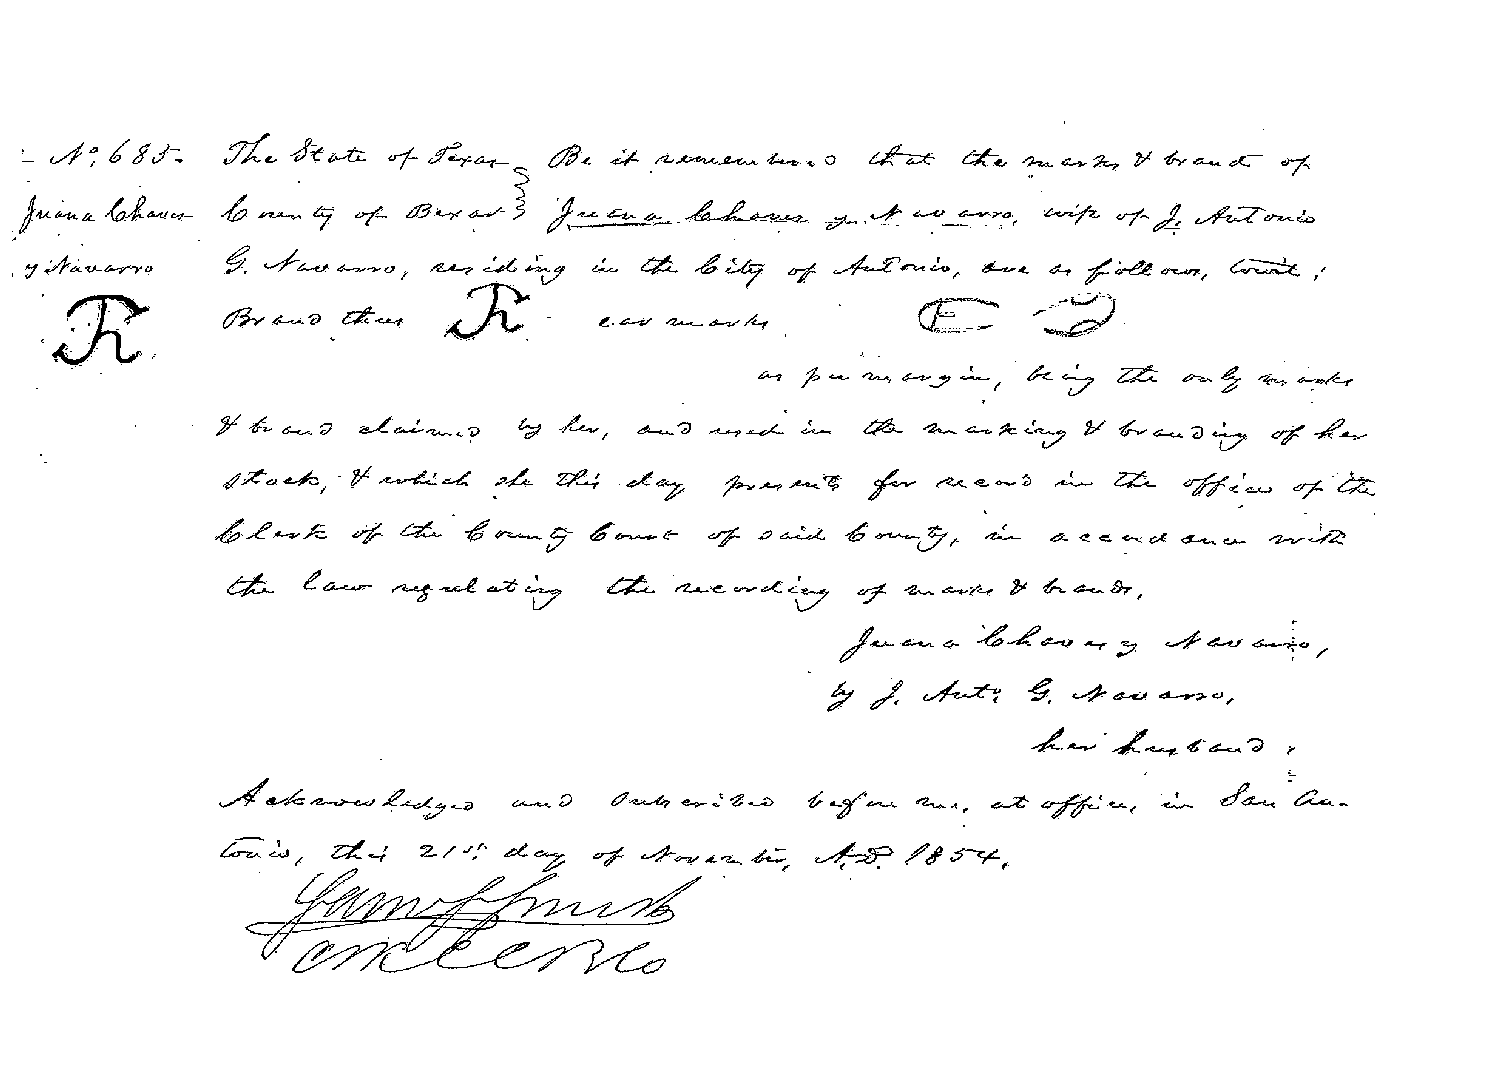 No. 685.
Juana Chaves
y Navarro
The State of Texas
County of Bexar
Be it remembered that the marks & brand of
Juana Chaves y Navarro, wife of J. Antonio
G. Navarro, residing in the City of Antonio, are as follows, towit;
Brand thus ear marks
as per margin, being the only marks
& brand claimed by her, and used in the marking & branding of her
stock, & which she this day presents for record in the office of the
Clerk of the County Court of said County, in accordance with
the law regulating the recording of marks & brands.
Juana Chaves y Navarro,
by J. Anto. G. Navarro,
her husband.
Acknowledged and subscribed before me, at office, in San An-
tonio, this 21st. day of November, A.D. 1854.